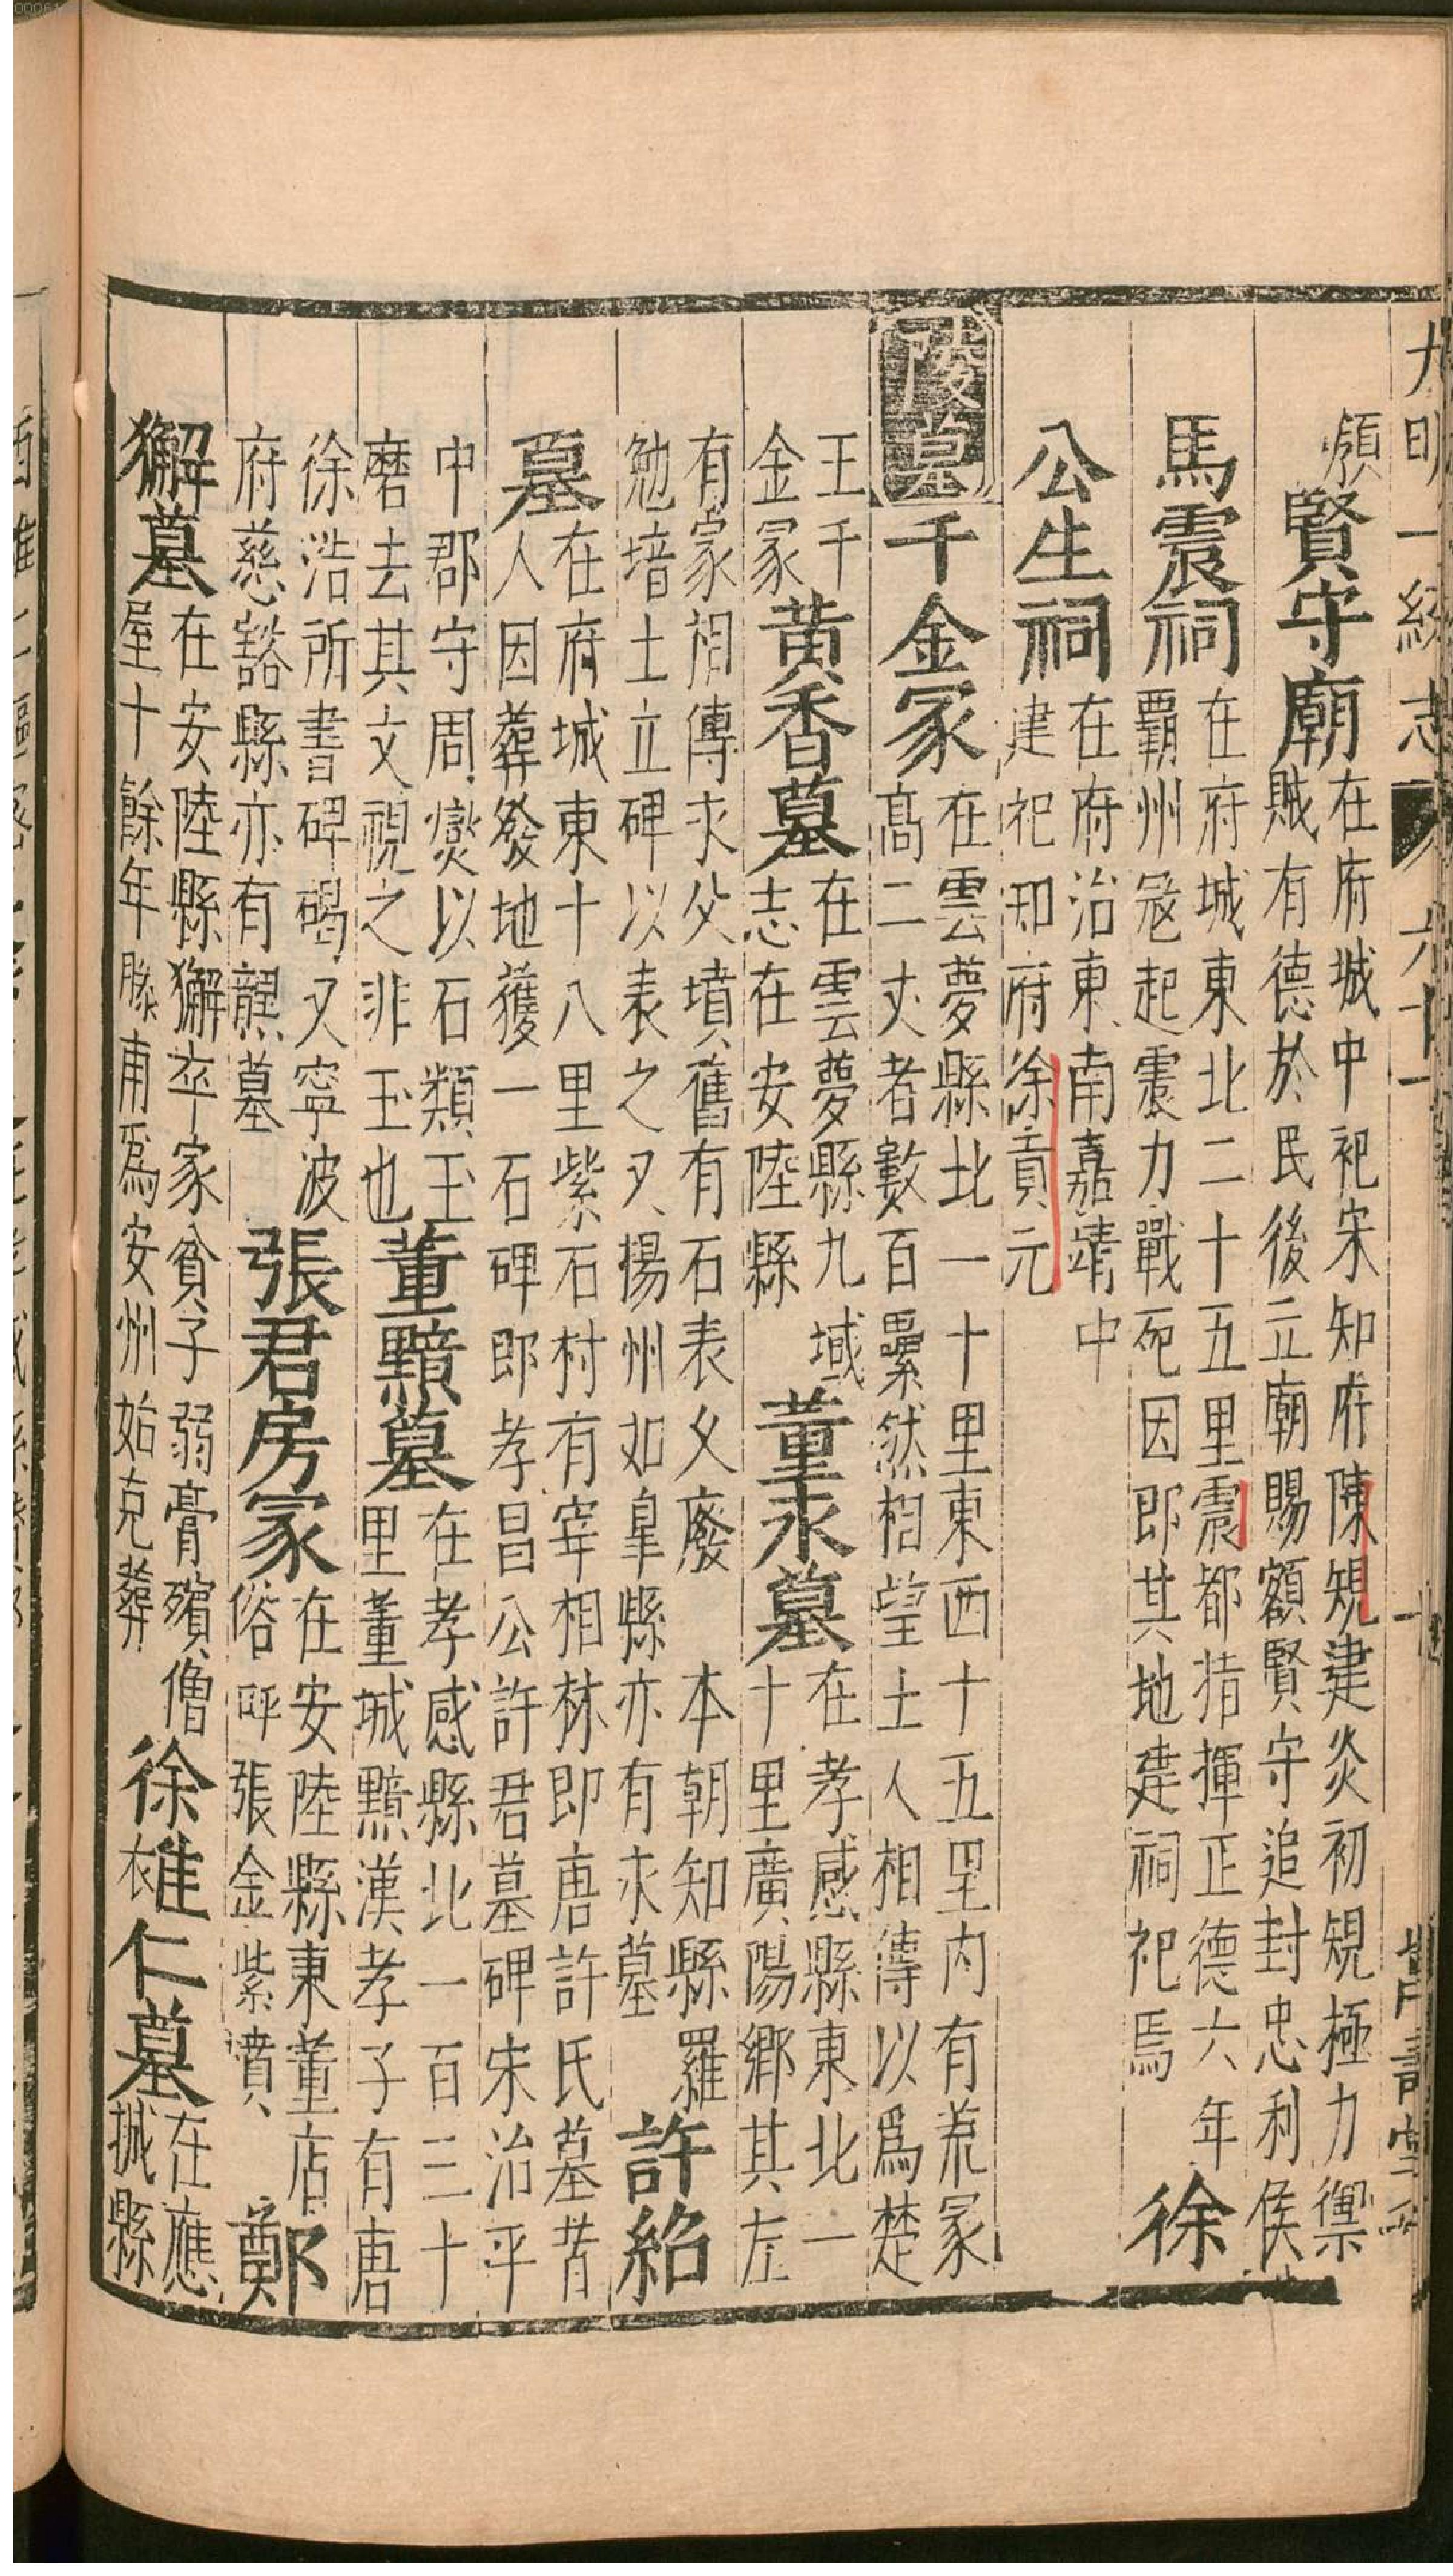 大明一統志
六十一
額
賢守廟
在府城中祀宋知府陳規建炎初規極力禦
賊有德於民後立廟賜額賢守追封忠利侯
馬震祠
在府城東北二十五里震都指揮正德六年
霸州冦起震力戰死因即其地建祠祀焉
徐
公生祠
在府治東南嘉靖中
建祀知府徐貢元
陵墓
千金冢
在雲夢縣北一十里東西十五里内有荒冢
高二丈者數百纍然相望土人相傳以爲楚
王千
金冢
黄香墓
在雲夢縣九域
志在安陸縣
董永墓
在孝感縣東北一
十里廣陽鄉其左
有冢相傳永父墳舊有石表乆廢 本朝知縣羅
勉培土立碑以表之又揚州如皐縣亦有永墓
許紹
墓
在府城東十八里紫石村有宰相林即唐許氏墓昔
人因葬發地獲一石碑即孝昌公許君墓碑宋治平
中郡守周爕以石類玉
磨去其文視之非玉也
董黯墓
在孝感縣北一百三十
里董城黯漢孝子有唐
徐浩所書碑碣又寧波
府慈谿縣亦有黯墓
張君房冢
在安陸縣東董店
俗呼張金紫墳
鄭
獬墓
在安陸縣獬卒家貧子弱膏殯僧
屋十餘年滕甫爲安州始克葬
徐惟仁墓
在應
城縣